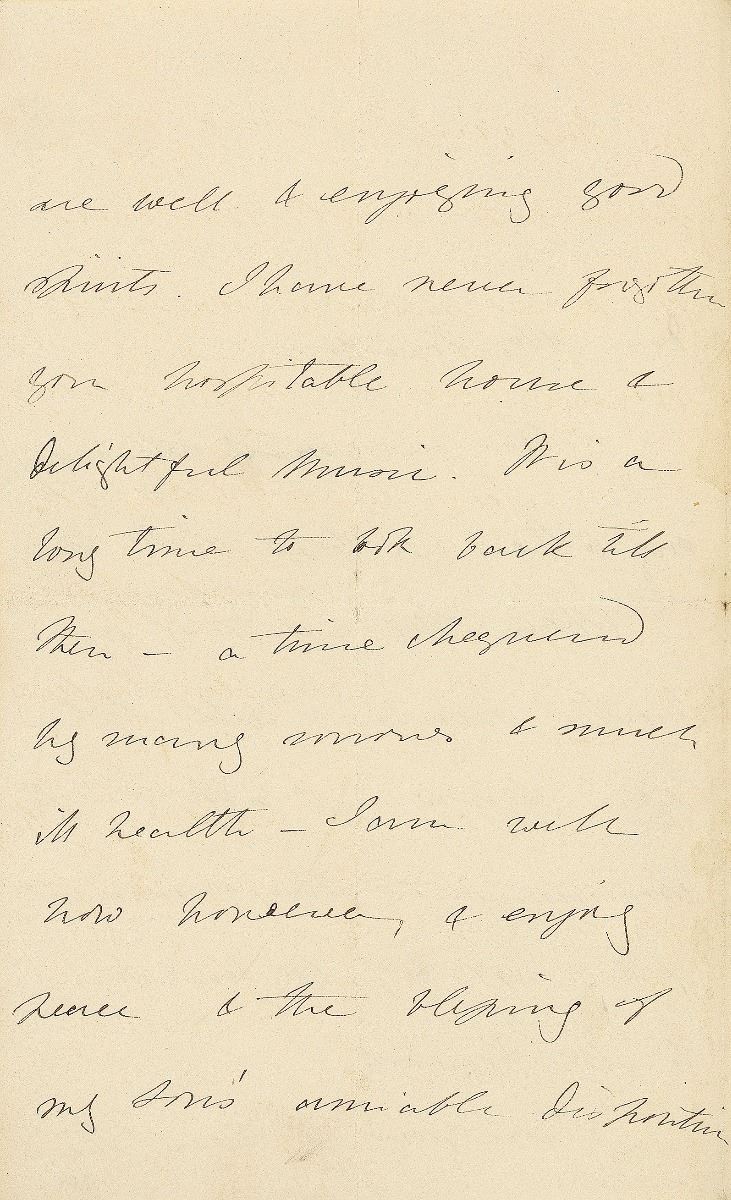 are well & enjoying good
spirits. I have never forgotten
your hospitable home &
delightful music. It is a
long time to look back till
then – a time chequered
by many sorrows & much
ill health – I am well
now however, & enjoy
peace & the blessing of
my son's amiable disposition